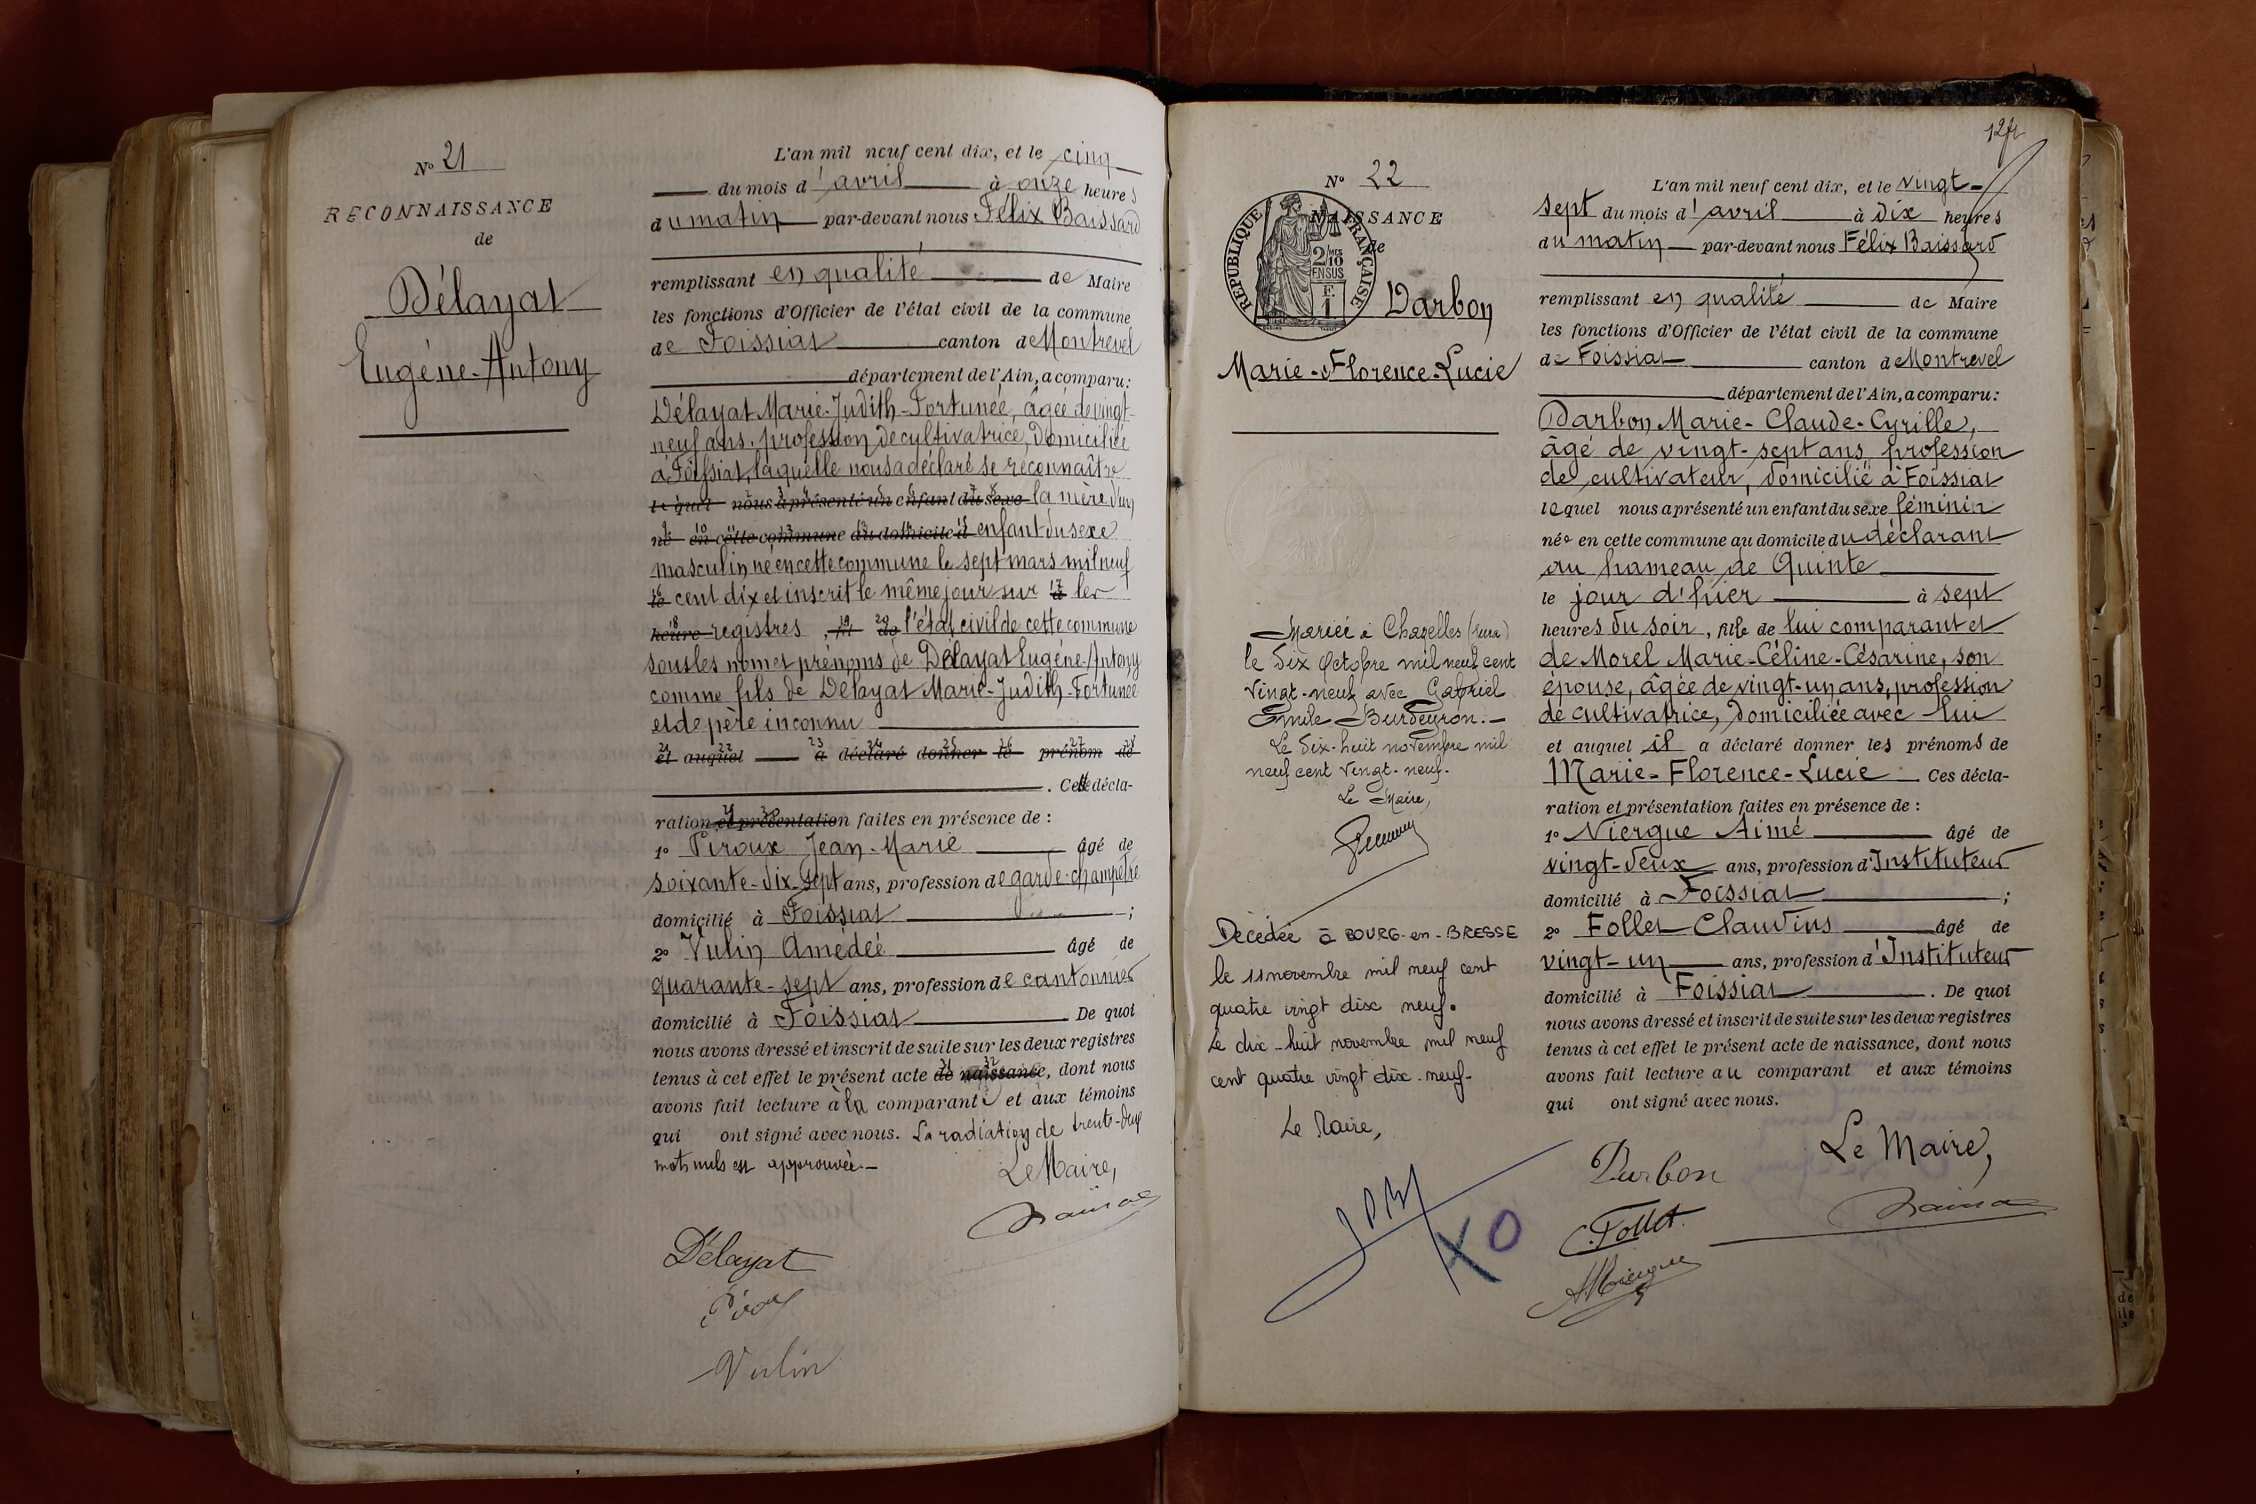 N° 21
RECONNAISSANCE
de
Délayat
Eugène-Antony
L'an mil neuf cent dix, et le cinq
du mois d'avril à onze heures
du matin par-devant nous Félix Baissard
remplissant en qualité de Maire
les fonctions d'Officier de l'état civil de la commune
de Foissiat canton de Montrevel
département de l'Ain, a comparu:
Délayat Marie-Judith-Fortunée, âgée de vingt-
neuf ans, profession de cultivatrice, domiciliée
à Foissiat, laquelle nous a déclaré se reconnaître
le quel nous a présenté un enfant du sexe la mère d'un
né en cette commune au domicile d enfant du sexe
masculin, né en cette commune le sept mars mil neuf
le cent dix et inscrit le même jour sur à les
heure registres, fil de l'état civil de cette commune
sous les nom et prénoms de Délayat Eugène-Antony
comme fils de Délayat Marie-Judith-Fortunée
et de père inconnu
et auquel a déclaré donner le prénom de
. Cette décla-
ration et présentation faites en présence de :
1° Piroux Jean-Marie âgé de
soixante-dix-sept ans, profession de garde-champêtre
domicilié à Foissiat ;
2° Vulin Amédée âgé de
quarante-sept ans, profession de cantonnier
domicilié à Foissiat De quoi
nous avons dressé et inscrit de suite sur les deux registres
tenus à cet effet le présent acte de naissance, dont nous
avons fait lecture à la comparante et aux témoins
qui ont signé avec nous. La radiation de trente-deux
mots nuls est approuvée.-
Le Maire,
Délayat
Vulin
12
N° 22
NAISSANCE
de
RÉPUBLIQUE FRANÇAISE
2/10
EN SUS
F.
1
Darbon
Marie-Florence-Lucie
Mariée à Chazelles (Jura)
le dix octobre mil neuf cent
vingt-neuf avec Gabriel
Emile Burdeyron.-
Le dix-huit novembre mil
neuf cent vingt-neuf.
Le Maire,
Décédée à BOURG-en-BRESSE
le 11 novembre mil neuf cent
quatre vingt dix neuf.
Le dix-huit novembre mil neuf
cent quatre vingt dix-neuf-
Le Maire,
XO
L'an mil neuf cent dix, et le vingt-
sept du mois d'avril à dix heures
du matin par-devant nous Félix Baissard
remplissant en qualité de Maire
les fonctions d'Officier de l'état civil de la commune
de Foissiat canton de Montrevel
département de l'Ain, a comparu:
Darbon Marie-Claude-Cyrille,
âgé de vingt-sept ans, profession
de cultivateur, domicilié à Foissiat
lequel nous a présenté un enfant du sexe féminin
née en cette commune au domicile du déclarant
au hameau de Quinte
le jour d'hier à sept
heures du soir, fille de lui comparant et
de Morel Marie-Céline-Césarine, son
épouse, âgée de vingt-un ans, profession
de cultivatrice, domiciliée avec lui
et auquel il a déclaré donner les prénoms de
Marie-Florence-Lucie. Ces décla-
ration et présentation faites en présence de :
1° Niergue Aimé âgé de
vingt-deux ans, profession d'Instituteur
domicilié à Foissiat ;
2° Follet Claudius âgé de
vingt-un ans, profession d'Instituteur
domicilié à Foissiat. De quoi
nous avons dressé et inscrit de suite sur les deux registres
tenus à cet effet le présent acte de naissance, dont nous
avons fait lecture au comparant et aux témoins
qui ont signé avec nous.
Le Maire,
Darbon
C. Follet